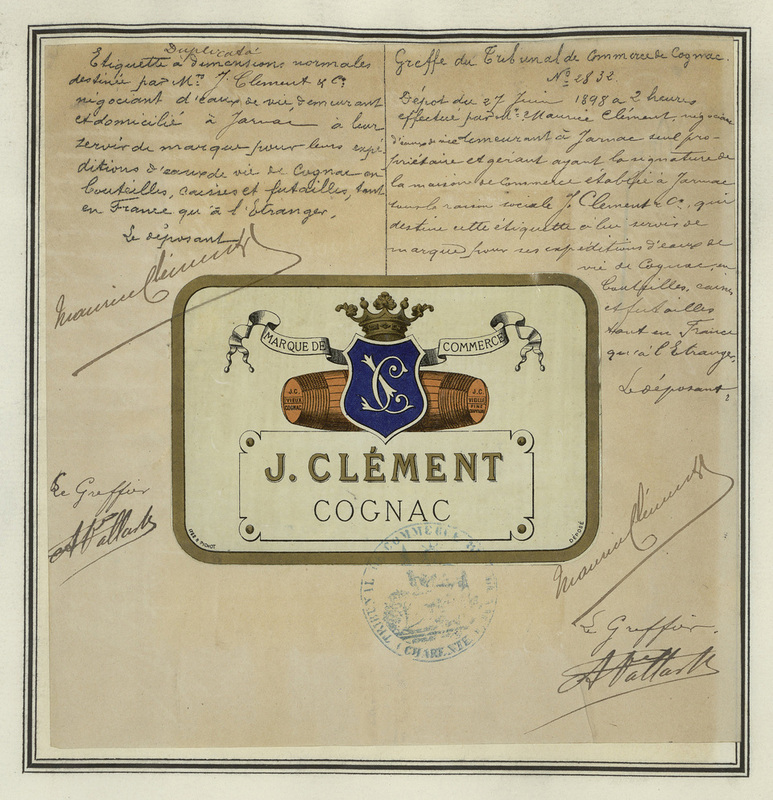 Duplicata
Etiquette à dimensions normales
destinée par Mr. J. Clement & Co
négociant d'eaux de vie demeurant
et domicilié à Jarnac à leur
servir de marque pour leurs expé
ditions d'eaux de vie de Cognac en
bouteilles, caisses et futailles, tant
en France qu'à l'Etranger.
Le déposant
Maurice Clément
Greffe du Tribunal de Commerce de Cognac.
No 2832.
Dépot du 27 Juin 1898 à 2 heures
effectué par Mr. Maurice Clément, négociant
d'eaux de vie demeurant à Jarnac seul pro-
priétaire et gérant ayant la signature de
la maison de commerce établie à Jarnac
sous la raison sociale J. Clement & Co, qui
destine cette étiquette à lui servir de
marque pour ses expéditions d'eaux de
vie de Cognac en
bouteilles, caisses
et futailles
tant en France
qu'à l'Etranger.
Le déposant,
MARQUE DE COMMERCE
J.C. VIEUX COGNAC
J.C. VIEILLE FINE
JC
J. CLÉMENT
COGNAC
DÉPOSÉ
Le Greffier
Maurice Clément
TRIBUNAL DE COMMERCE
(CHARENTE)
Le Greffier.